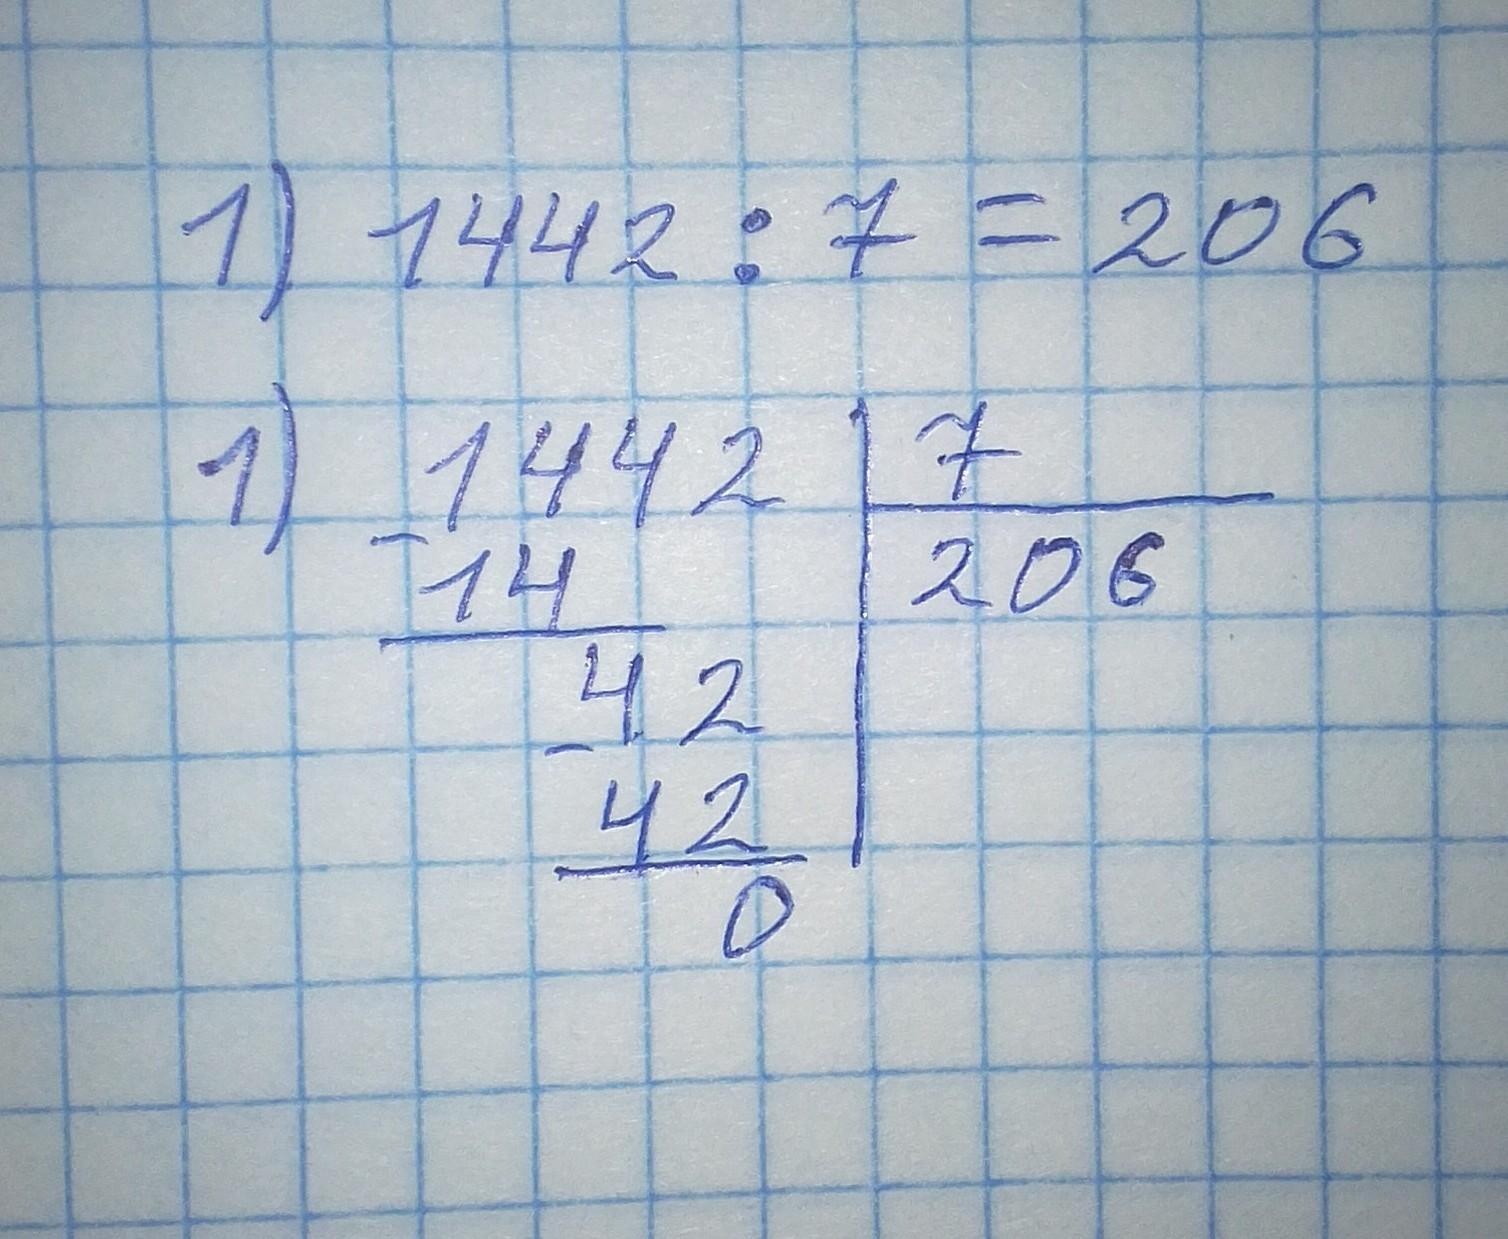 1) 1442 : 7 = 206
1) 1442 7
- 14 206
42
- 42
0